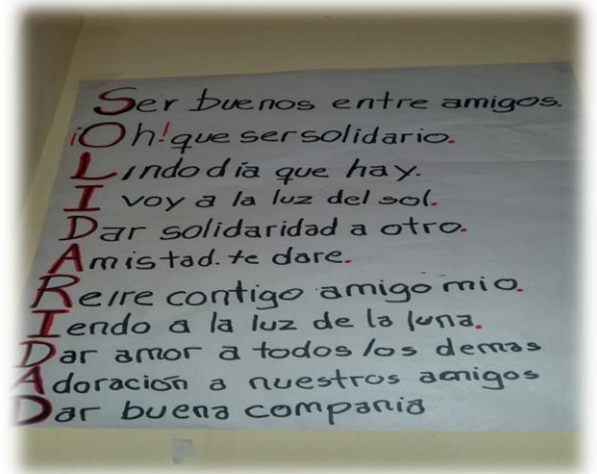 Ser buenos entre amigos.
¡Oh! que ser solidario.
Lindo día que hay.
I voy a la luz del sol.
Dar solidaridad a otro.
Amistad. te dare.
Reire contigo amigo mio.
Iendo a la luz de la luna.
Dar amor a todos los demas
Adoración a nuestros amigos
Dar buena compania